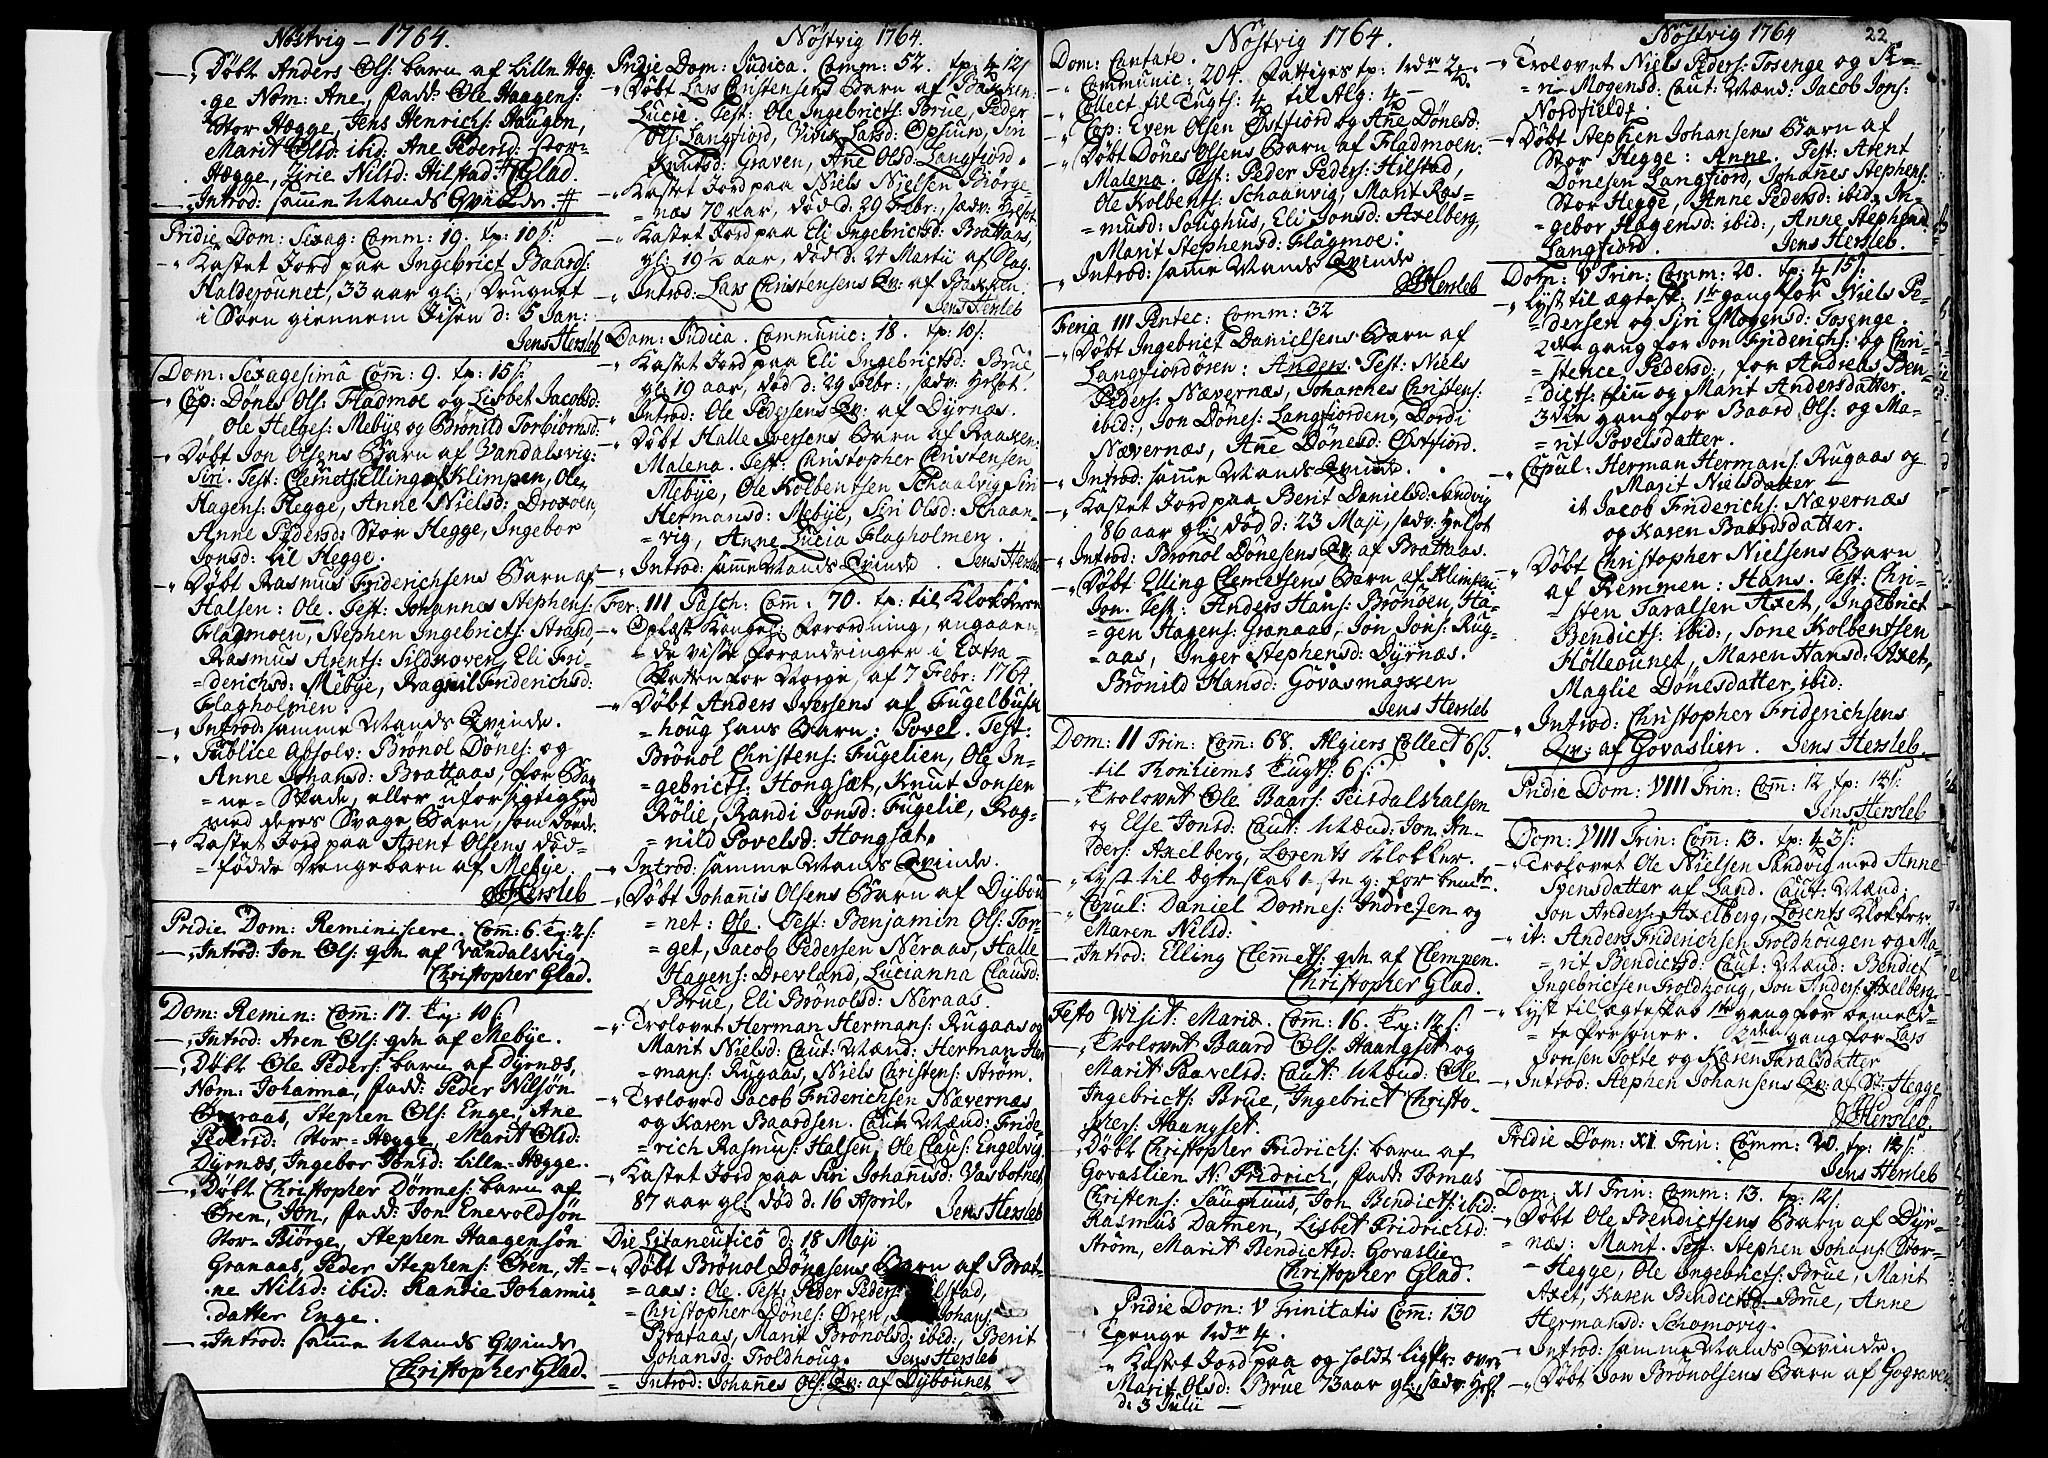 Nöstvig – 1764.
Döbt Anders Ols: barn af Lille Hæg-
ge Nom: Ane, fadd: Ole Haagens:
Stor Hægge, Jens Henrichs: Haagen,
Marit Olsd: ibid: Ane Pedersd: Stor-
Hægge, Sirie Nilsd: Hilstad. CGlad.
Introd: samme Mands Qvinde.
Pridie Dom: Sexag: Comm: 19. tp: 10 s:
Kastet Jord paa Ingebrict Baards:
Halderounet, 33 aar gl:, Drugnet
i Söen giennem Iisen d: 5 Jan:
Jens Hersleb
Dom: Sexagesima Com: 9. tp: 15 s:
Cop: Dönes Ols: Fladmoe og Lisbet Jacobsd:
Ole Helges: Mebye og Brönild Torbiörnsd:
Döbt Jon Olsens Barn af Vandalsvig:
Siri. Test: Clemets: Elling af Klimpen, Ole
Hagens: Hegge, Anne Nielsd: Droxoen,
Anne Pedersd: Stor Hegge, Ingebor
Jonsd: lil Hegge.
Döbt Rasmus Friderichsens Barn af
Halsen: Ole. Test: Johannes Stephens:
Flagmoen, Stephen Ingebricts: Strand
Rasmus Arents: Sildhoven, Eli Fri-
=derichsd: Mebye, Ragnil Friderichsd:
Flagholmen.
Introd: samme Mands Qvinde.
Publice Absolv: Brönol Dönes: og
Anne Johansd: Brattaas, for Bar
=ne= Skade, eller uforsigtighed
med deres Svage Barn, som döde.
Kastet Jord paa Arent Olsens död-
=födde Drengebarn af Mebye.
JHersleb
Pridie Dom: Reminiscere. Com: 6. Tp: 2 s:
Introd: Jon Ols: qvn af Vandalsvig.
Christopher Glad.
Dom: Remin: Com: 17. Tp: 10 s:
Introd: Aren Ols: qvn af Mebye.
Döbt Ole Peders: barn af Dyrnæs,
Nom: Johanna, fadd: Peder Nilsön
Överaas, Stephen Ols: Enge, Ane
Pedersd: Stor=Hægge, Marit Olsd:
Dyrnæs, Ingebor Jonsd: Lille=Hægge.
Döbt Christopher Dönnes: barn af
Ören, Jon, fadd: Jon Enevoldsön
Stor=Biörge, Stephen Haagensön
Granaas, Peder Stephens: Ören, A-
ne Nilsd: ibid: Randie Johannis-
datter Enge.
Introd: samme Mands Qvinde
Christopher Glad.
Nöstvig 1764.
Pridie Dom: Judica. Comm: 52. tp: 4 12 s
Döbt Lars Cristensens Barn af Baxken:
Lucie. Test: Ole Ingebricts: Brue, Peder
Ols: Langfiord, Vibix Larsd: Opsiun, Siri
Knutsd: Graven, Anne Olsd: Langfiord.
Kastet Jord paa Niels Nielsen Biörge-
=næs 70 aar, död d: 29 Febr:, sædv: Helsot
Kastet Jord paa Eli Ingebrictsd: Brattaas,
gl: 19½ aar, död d: 24 Martii af Slag.
Introd: Lars Christensens Qv: af Baxken.
Jens Hersleb
Dom: Judica. Communic: 18. tp: 10 s:
Kastet Jord paa Eli Ingebrictsd: Brue,
gl: 19 aar, död d: 29 Febr:, sædv: Helsot
Introd: Ole Pedersens Qv: af Dyrnæs.
Döbt Halle Iversens Barn af Raaken:
Malena. Test: Christopher Christensen
Mebye, Ole Kolbentsen Schaalvig, Siri
Hermansd: Mebye, Siri Olsd: Skaan-
=vig, Anne Lucia Flagholmen.
Introd: samme Mands Qvinde. Jens Hersleb
Fer: III Pasch: Com: 70. tp: til Klokkeren
Oplæst Kongel: Forordning, angaaen-
de visse forandringer i Extra-
Skatten for Norge, af 7 Febr: 1764.
Döbt Anders Iversens af Fugelbusk
=houg hans Barn: Povel. Test:
Brönol Christens: Fugelien, Ole In-
=gebricts: Hongsæt, Knut Jonsen
Rölie, Randi Jonsd: Fugelie, Rag-
=nild Povelsd: Hongsæt.
Introd: samme Mands Qvinde.
Döbt Johannis Olsens Barn af Dybou
=net: Ole. Test: Benjamin Ols: Tor-
=get, Jacob Pedersen Neraas, Halle
Hagens: Drevland, Lucianna Clausd:
Brue, Eli Brönolsd: Neraas.
Trolovet Herman Hermans: Rugaas og
Marit Nielsd: Caut: Mænd: Herman Her
=mans: Rugaas, Niels Christens: Ström.
Troloved Jacob Friderichsen Nævernæs
og Karen Baardsen. Caut: Mænd: Fride-
=rich Rasmus: Halsen, Ole Claus: Engelvig.
Kastet Jord paa Siri Johannisd: Vasbotnet
87 aar gl: död d: 16 April. Jens Hersleb
Die Litaneutico d: 18 Maji
Döbt Brönol Dönesens Barn af Brat-
=aas: Ole. Test: Peder Peders: Hilstad,
Christopher Dönes: Ören, Johans:
Brataas, Marit Brönolsd: ibid:, Berit
Johansd: Troldhoug. Jens Hersleb
Introd: Johannes Ols: Qv: af Dybounet
Nöstvig 1764.
Dom: Cantate.
Communic: 204. Fattiges tp: 1 rdr 2
Collect til Tugts: 4 til Alg: 4
Cop: Even Olsen Östfiord og Ane Dönesd:
Döbt Dönes Olsens Barn af Fladmoen:
Malena. Test: Peder Peders: Hilstad,
Ole Kolbents: Schaanvig, Marit Ras-
=musd: Soughus, Eli Jonsd: Axelberg,
Marit Stephensd: Flagmoe.
Introd: samme Mands Qvinde.
JHersleb
Feria III Pentec: Comm: 32
Döbt Ingebrict Danielsens Barn af
Langfiordören: Anders. Test: Niels
Peders: Nævernæs, Johannes Christens:
ibid:, Jon Dönes: Langfiorden, Dordi
Nævernæs, Anne Dönesd: Östfiord.
Introd: samme Mands Qvinde.
Kastet Jord paa Berit Danielsd: Sandvig
86 aar gl:, död d: 23 Maji, sædv: Helsot
Introd: Brönol Dönesens Qv: af Brattaas.
Döbt Elling Clemetsens Barn af Klimpen:
Jon. Test: Anders Hans: Brönöen, Ha-
=gen Hagens: Granaas, Jon Jons: Rug-
=aas, Inger Stephensd: Dyrnæs.
Brönild Hansd: Govasmarken
Jens Hersleb
Dom: II Trin: Com: 68. Algiers Collect 6 s.
til Tronhiems Tugts: 6 s:
Trolovet Ole Baars: Feisdalshalsen
og Else Jonsd: Caut: Mænd: Jon An-
ders: Axelberg, Lorents Klokker.
Lyst til Ægteskab 1ste g: for bemte.
Copul: Daniel Dönnes: Indresen og
Maren Nilsd:
Introd: Elling Clemmets: qvn af Clempen.
Christopher Glad.
Festo Visit: Mariæ. Com: 16. Tp: 12 s:
Trolovet Baard Ols: Haangset og
Marit Paavelsd: Caut: Mænd: Ole
Ingebricts: Brue, Ingebrict Christo-
phers: Haangset.
Döbt Christopher Fridrichs: barn af
Govaslien N: Fridrich, fadd: Tomas
Christens: Saughuus, Jon Bendicts: ibid:
Rasmus Datnen, Lisbet Fridrichsd:
Ström, Marit Bendictsd: Govaslie
Christopher Glad.
Pridie Dom: V Trinitatis Com: 130
Tpenge 1 rdr 4.
Kastet Jord paa og holdt ligpr: over
Marit Olsd: Brue 73 aar gl:, sædv: Hels
d: 3 Julii
Nöstvig 1764
22
Trolovet Niels Peders: Tosenge og Si-
ri Mogensd: Caut: Mænd: Jacob Jons:
Nordfield:
Döbt Stephen Johansens Barn af
Stor Hegge: Anne. Test: Arent
Dönesen Langfiord, Johannes Stephens:
Stor Hegge, Anne Pedersd: ibid:, In-
=gebor Hagensd: ibid:, Anne Stephensd
Langfiord. Jens Hersleb.
Dom: V Trin: Comm: 20. tp: 4 15 s:
Lyst til ægtesk: 1te gang for Niels Pe-
dersen og Siri Mogensd: Tosenge.
2den gang for Jon Friderichs: og Chri-
=stence Pedersd:, for Andreas Ben-
dicts: Finn og Marit Andersdatter.
3die gang for Baard Ols: og Ma-
=rit Povelsdatter.
Copul: Herman Hermans: Rugaas og
Marit Nielsdatter
it Jacob Friderichs: Nævernæs
og Karen Baardsdatter.
Döbt Christopher Nielsens Barn
af Remmen: Hans. Test: Chri-
=sten Taralsen Axet, Ingebrict
Bendicts: ibid:, Sone Kolbentsen
Hölleounet, Maren Hansd: Axet,
Maglie Dönesdatter ibid:
Introd: Christopher Friderichsens
Qv: af Govaslien. Jens Hersleb.
Pridie Dom: VIII Trin: Comm: 12 tp: 14 s:
Jens Hersleb
Dom: VIII Trin: Com: 13. tp: 4 3 s:
Trolovet Ole Nielsen Sandvig med Anne
Svensdatter af Land. Caut: Mænd:
Jon Anders: Axelberg, Lorents Klokker.
it: Anders Friderichsen Troldhougen og Ma-
=rit Bendictsd: Caut: Mænd: Bendict
Ingebrictsen Troldhoug, Jon Anders: Axelberg.
Lyst til ægteskab 1te gang for bemeld-
=te Personer. 2den gang for Lars
Jonsen Tofte og Karen Taralsdatter
Introd: Stephen Johansens Qv: af St: Hegge
JHersleb.
Pridie Dom: XI Trin: Comm: 20. tp: 14 s:
Jens Hersleb
Dom: XI Trin: Comm: 13. tp: 12 s.
Döbt Ole Bendictsens Barn af Dyr-
=næs: Marit. Test: Stephen Johans: Stor-
Hegge, Ole Ingebricts: Brue, Marit
Axet, Karen Bendictsd: Brue, Anne
Hermansd: Schomovig.
Introd: samme Mands Qvinde.
Döbt Jon Brönolsens Barn af Gograven